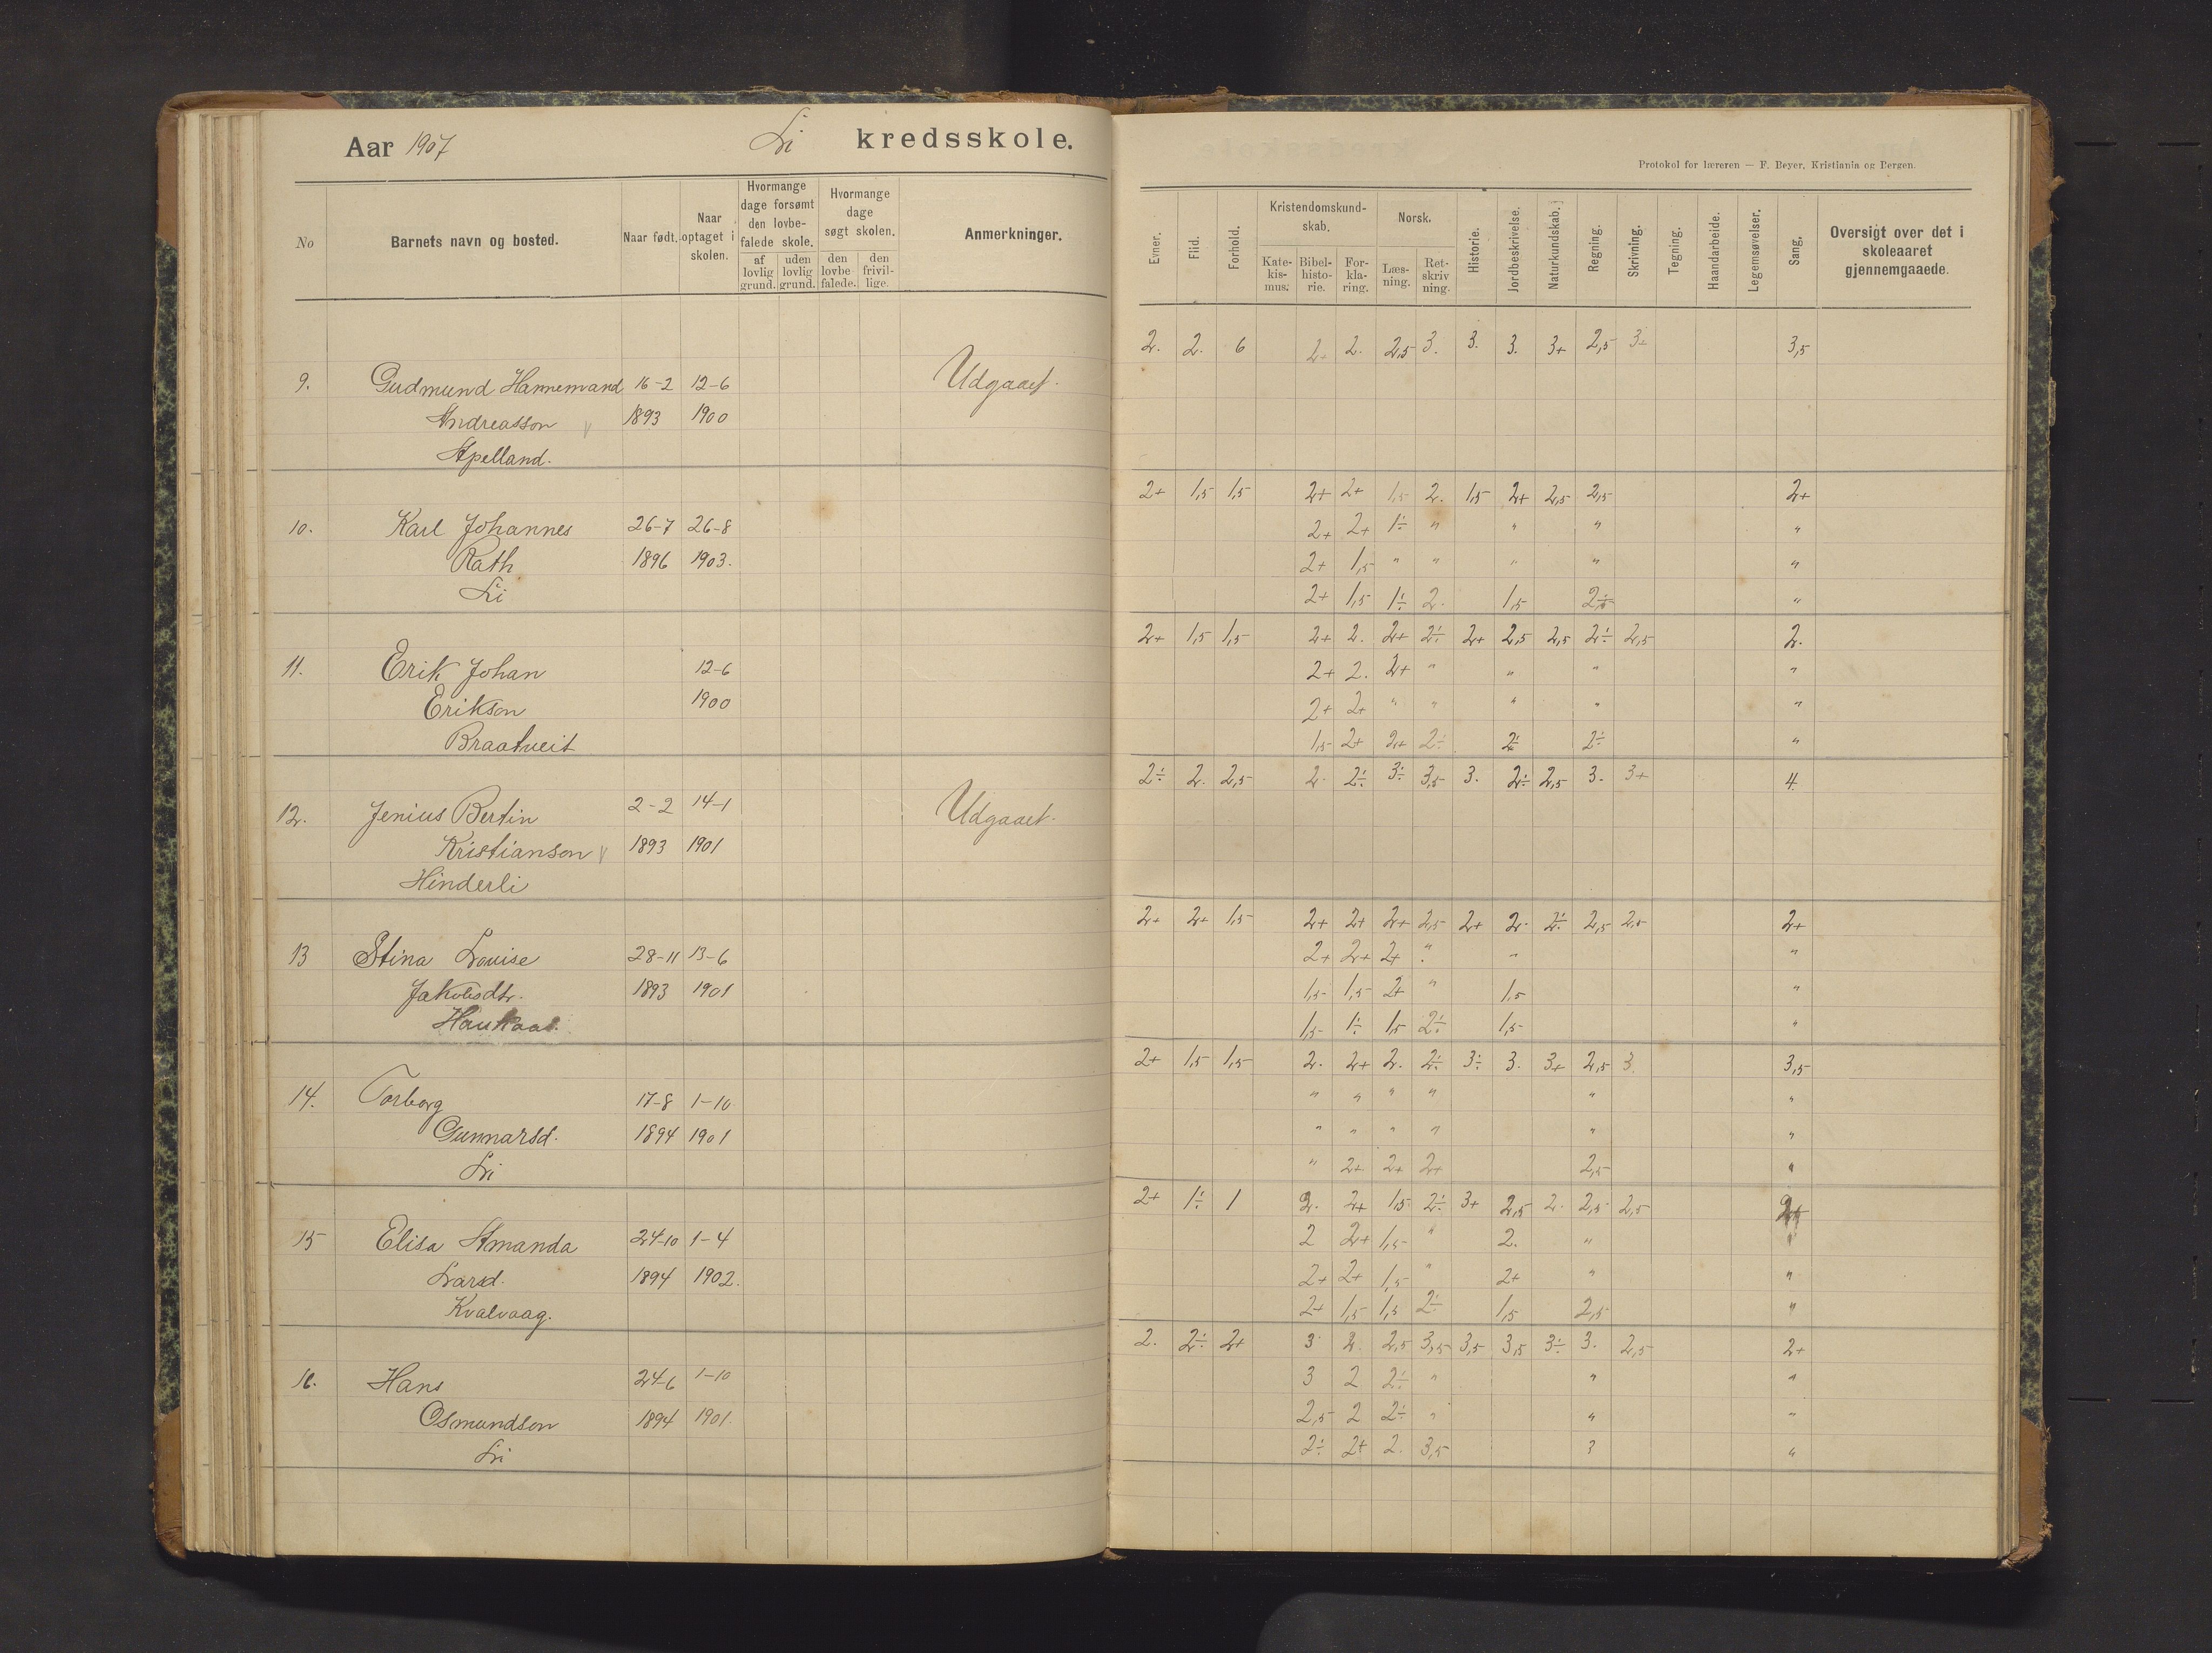 Aar 1907 Li kredsskole.
No
Barnets navn og bosted.
Naar født.
Naar optaget i skolen.
Hvormange dage forsømt den lovbefalede skole.
af lovlig grund.
uden lovlig grund.
Hvormange dage søgt skolen.
den lovbefalede.
den frivillige.
Anmerkninger.
9. Gudmund Hannemand 16-2 12-6 Udgaaet.
Andreasson 1893 1900
Apelland.
10. Karl Johannes 26-7 26-8
Rath 1896 1903.
Li
11. Erik Johan 12-6
Erikson 1900
Braatveit
12. Jenius Bertin 2-2 14-1 Udgaaet.
Kristianson 1893 1901
Hinderli
13 Stina Lovise 28-11 13-6
Jakobsdtr. 1893 1901
Haukaas.
14. Torborg 17-8 1-10
Gunnarsd. 1894 1901
Li
15 Elisa Amanda 24-10 1-4
Larsd. 1894 1902.
Kvalvaag.
16. Hans 24-6 1-10
Osmundson 1894 1901.
Li
Protokol for læreren — F. Beyer, Kristiania og Bergen.
Evner.
Flid.
Forhold.
Kristendomskundskab.
Katekismus.
Bibelhistorie.
Forklaring.
Norsk.
Læsning.
Retskrivning.
Historie.
Jordbeskrivelse.
Naturkundskab.
Regning.
Skrivning.
Tegning.
Haandarbeide.
Legemsøvelser.
Sang.
Oversigt over det i skoleaaret gjennemgaaede.
2. 2. 6 2. 2. 2,5 3. 3. 3. 3+ 2,5 3+ 3,5
2+ 1,5 1,5 2+ 2+ 1,5 2. 1,5 2+ 2,5 2,5 2+
2+ 2+ 1÷ " " " "
2+ 1,5 " " " " "
2+ 1,5 1÷ 2. 1,5 2÷ "
2+ 1,5 1,5 2+ 2. 2+ 2÷ 2+ 2,5 2,5 2÷ 2,5 2.
2+ 2. 2+ " " " "
2+ 2+ " " " " "
1,5 2+ 2+ 2÷ 2÷ 2÷ "
2÷ 2. 2,5 2. 2÷ 3÷ 3,5 3. 2÷ 2,5 3. 3+ 4.
2+ 2+ 1,5 2+ 2+ 2+ 2,5 2+ 2. 2÷ 2,5 2,5 2+
2+ 2+ 2+ " " "
1,5 1,5 2+ " 1,5 "
1,5 1÷ 1,5 2÷ 1,5 "
2+ 1,5 1,5 2. 2+ 2. 2÷ 3÷ 3. 3+ 2,5 3. 3,5
" " " " " "
" " " " " "
" 2+ 2+ 2+ 2,5 "
2+ 1÷ 1 2. 2+ 1,5 2÷ 3+ 2,5 2. 2,5 2,5 2+
2 2+ 1,5 " 2. " "
2+ 2+ 1,5 " 2+ " "
2+ 1,5 1,5 2÷ 1,5 2,5 "
2. 2÷ 2+ 3 2. 2,5 3,5 3,5 3,5 3÷ 3. 2,5 2+
3 2 2÷ " " "
2,5 2 2÷ " " "
2÷ 2+ 2. 3,5 3 "